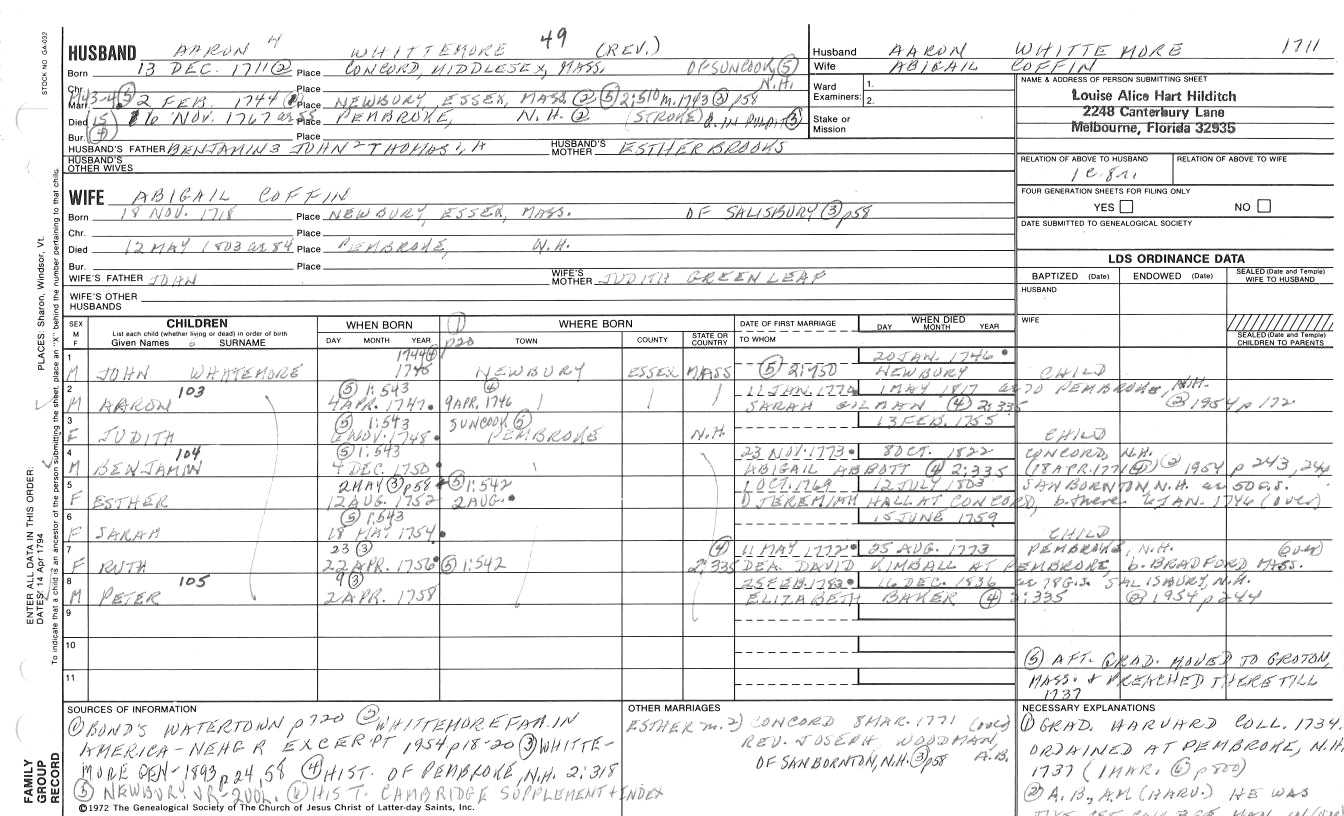 STOCK NO GA-032
HUSBAND AARON 4 WHITTEMORE 49 (REV.)
Born 13 DEC. 1711 ② Place CONCORD, MIDDLESEX, MASS. OF SUNCOOK ⑤ N.H.
Chr.
Marr. 1743-4 ⑤ 2 FEB. 1744 Place NEWBURY, ESSEX, MASS ② ⑤ 2:510 m. 1743 ③ p58
Died 15 16 NOV. 1767 ae 55 Place PEMBROKE, N.H. ② (STROKE) ③
Bur. ④ Place
HUSBAND'S FATHER BENJAMIN 3 JOHN 2 THOMAS 1, A HUSBAND'S MOTHER ESTHER BROOKS
HUSBAND'S OTHER WIVES
WIFE ABIGAIL COFFIN
Born 18 NOV. 1718 Place NEWBURY, ESSEX, MASS. OF SALISBURY ③ p58
Chr. Place
Died 12 MAY 1803 ae 84 Place PEMBROKE, N.H.
Bur. Place
WIFE'S FATHER JOHN WIFE'S MOTHER JUDITH GREENLEAF
WIFE'S OTHER HUSBANDS
Husband AARON WHITTEMORE 1711
Wife ABIGAIL COFFIN
Ward Examiners: 1. 2.
Stake or Mission
NAME & ADDRESS OF PERSON SUBMITTING SHEET
Louise Alice Hart Hilditch
2248 Canterbury Lane
Melbourne, Florida 32935
RELATION OF ABOVE TO HUSBAND RELATION OF ABOVE TO WIFE
1 C. 8 r.
FOUR GENERATION SHEETS FOR FILING ONLY
YES NO
DATE SUBMITTED TO GENEALOGICAL SOCIETY
LDS ORDINANCE DATA
BAPTIZED (Date) ENDOWED (Date) SEALED (Date and Temple) WIFE TO HUSBAND
HUSBAND
WIFE
SEALED (Date and Temple) CHILDREN TO PARENTS
SEX M F CHILDREN List each child (whether living or dead) in order of birth Given Names SURNAME
WHEN BORN DAY MONTH YEAR
① p20 WHERE BORN TOWN COUNTY STATE OR COUNTRY
DATE OF FIRST MARRIAGE TO WHOM
WHEN DIED DAY MONTH YEAR
1 M JOHN WHITTEMORE 1744 ④ 1745 NEWBURY ESSEX MASS ⑤ 2:750 20 JAN. 1746 NEWBURY CHILD
2 M AARON 103 ⑤ 1:543 4 APR. 1747 ⑥ 9 APR. 1746 11 JAN. 1774 SARAH GILMAN ④ 2:335 1 MAY 1817 ae 70 PEMBROKE, N.H. ② 1954 p 172
3 F JUDITH ⑤ 1:543 6 NOV. 1748 SUNCOOK ⑤ PEMBROKE N.H. 13 FEB. 1755 CHILD
4 M BENJAMIN 104 ⑤ 1:543 4 DEC. 1750 23 NOV. 1773 ABIGAIL ABBOTT ④ 2:335 8 OCT. 1822 CONCORD, N.H. (18 APR. 1771 ④) ② 1954 p 243, 244
5 F ESTHER 2 MAY ③ p58 12 AUG. 1752 ⑤ 1:542 2 AUG. 1 OCT. 1769 12 JULY 1803 SANBORNTON, N.H. ae 50 G.S.
D JEREMIAH HALL AT CONCORD, b. there 6 JAN. 1746 (over)
6 F SARAH ⑤ 1:543 18 MAY 1754 15 JUNE 1759 CHILD
7 F RUTH 23 ③ 22 APR. 1756 ⑤ 1:542 ④ 2:335 11 MAY 1772 25 AUG. 1773 PEMBROKE, N.H. (over)
DEA. DAVID KIMBALL AT PEMBROKE b. BRADFORD MASS.
8 M PETER 105 9 ③ 2 APR. 1758 25 FEB. 1783 16 DEC. 1836 ae 78 G.S. SALISBURY, N.H.
ELIZABETH BAKER ④ 2:335 ② 1954 p 244
9
10
11
⑤ AFT. GRAD. MOVED TO GROTON,
MASS. & PREACHED THERE TILL
1737
SOURCES OF INFORMATION
① BOND'S WATERTOWN p720 ② WHITTEMORE FAM. IN
AMERICA - NEHGR EXCERPT 1954 p18-20 ③ WHITTE-
MORE GEN-1893 p24, 58 ④ HIST. OF PEMBROKE, N.H. 2:318
⑤ NEWBURY VR-2VOL. ⑥ HIST. CAMBRIDGE SUPPLEMENT & INDEX
©1972 The Genealogical Society of The Church of Jesus Christ of Latter-day Saints, Inc.
OTHER MARRIAGES
ESTHER m. 2) CONCORD 8 MAR. 1771 (over)
REV. JOSEPH WOODMAN,
OF SANBORNTON, N.H. ③ p58 A.B.
NECESSARY EXPLANATIONS
① GRAD. HARVARD COLL. 1734.
ORDAINED AT PEMBROKE, N.H.
1737 (1 MAR. ⑥ p800)
② A.B., A.M. (HARV.) HE WAS
ENTER ALL DATA IN THIS ORDER:
DATES: 14 Apr 1794 PLACES: Sharon, Windsor, Vt.
To indicate that a child is an ancestor of the person submitting the sheet, place an "X" behind the number pertaining to that child.
FAMILY GROUP RECORD